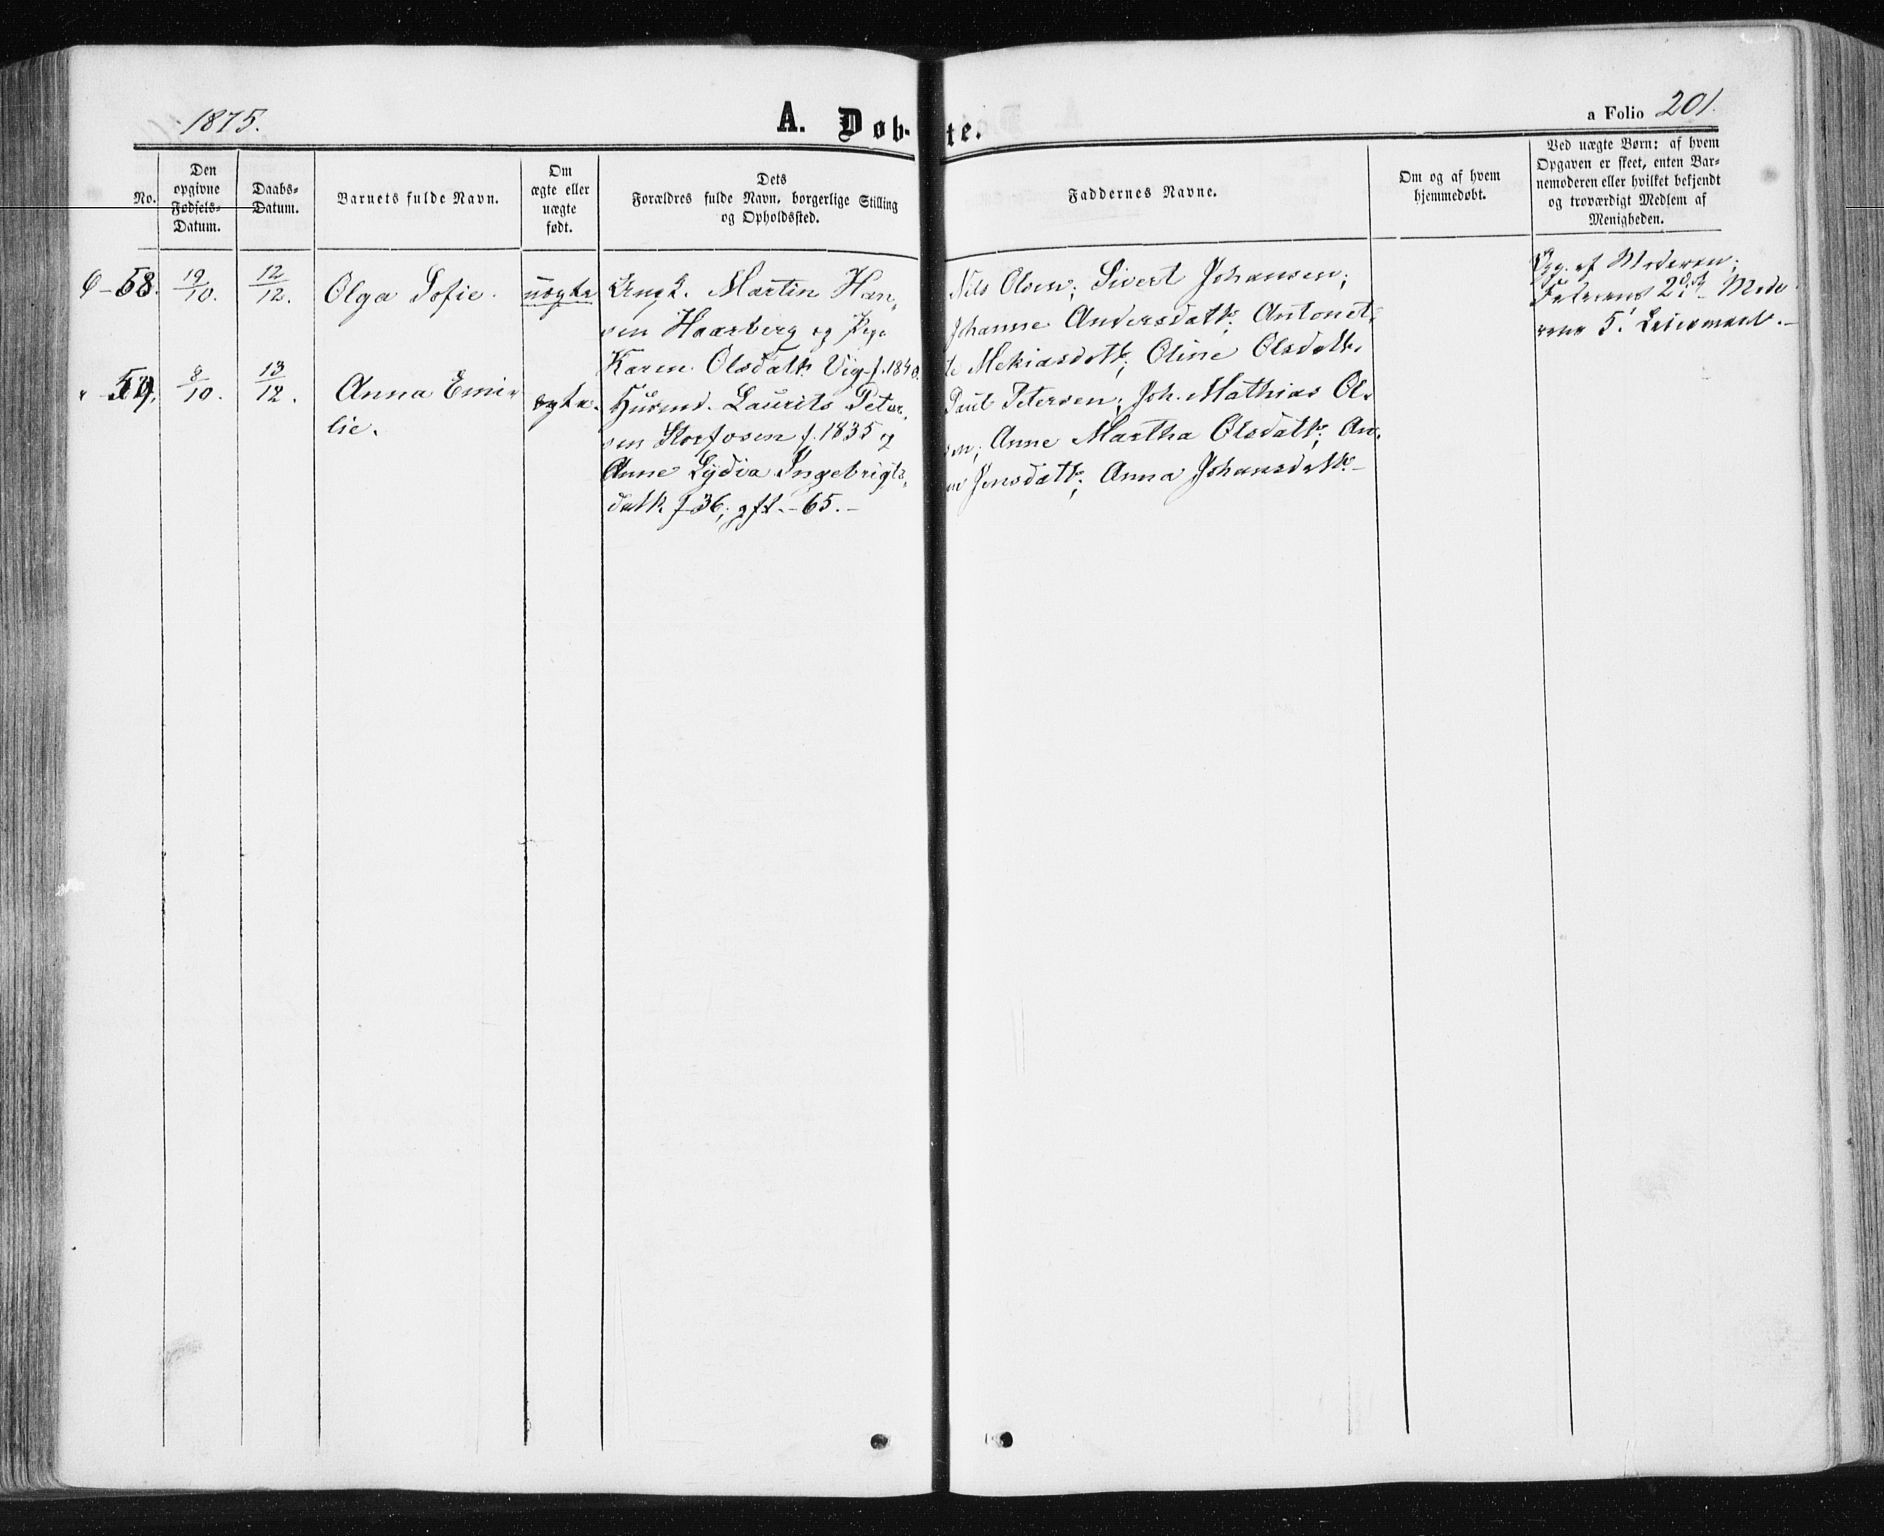 1875.
A. Døb-
te.
a Folio 201.
No.
Den
opgivne
Fødsels-
Datum.
Daabs-
Datum.
Barnets fulde Navn.
Om
ægte eller
uægte
født.
Dets
Forældres fulde Navn, borgerlige Stilling
og Opholdssted.
Faddernes Navne.
Om og af hvem
hjemmedøbt.
Ved uægte Børn: af hvem
Opgaven er skeet, enten Bar-
nemoderen eller hvilket bekjendt
og troværdigt Medlem af
Menigheden.
58. 19/10. 12/12. Olga Sofie. uægte Ungk. Martin Han-
sen Haarberg og Pige
Karen Olsdatr Vig f. 1840.
Nils Olsen; Sivert Johansen;
Johanne Andersdatr; Antonet-
te Mekiasdatr; Oline Olsdatr.
Opg. af Moderen;
Faderens 2det Mode-
rens 5. Leiermaal.-
59. 8/10. 13/12. Anna Emi-
lie.
ægte. Husmd. Laurits Peter-
sen Storfosen f. 1835 og
Anne Lydia Ingebrigts-
datr f 36; gft. - 65.-
Paul Petersen; Joh. Mathias Ol-
sen; Anne Martha Olsdatr; An-
ne Jensdatr; Anna Johansdatr-